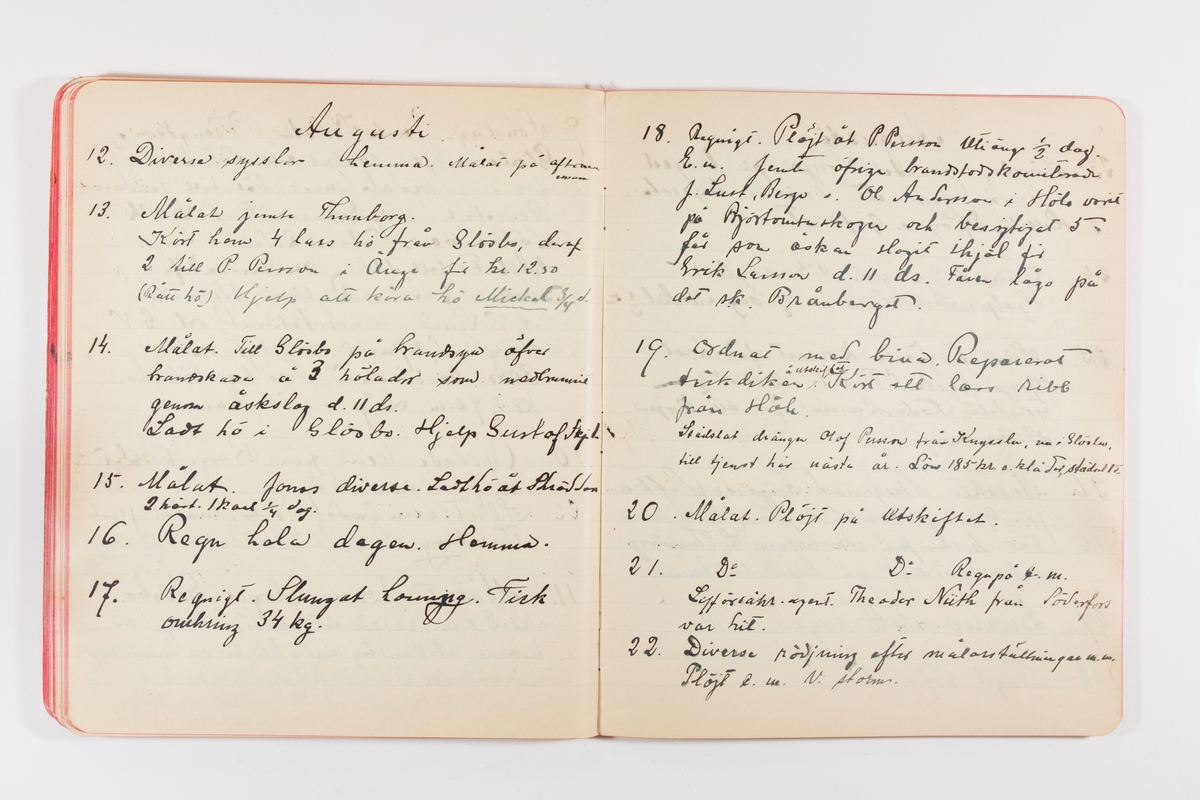 Augusti.
12. Diverse sysslor hemma. Målat på aftonen
13. Målat jemte Thunborg.
Kört hem 4 lass hö från Glösbo, deraf
2 till P. Persson i Änge för kr. 12.50
(Rått hö) Hjelp att köra hö Mickel 3/4 d.
14. Målat. Till Glösbo på brandsyn öfver
brandskada å 3 hölador som nedbrunnit
genom åskslag d. 11 ds.
Ladt hö i Glösbo. Hjelp Gustaf
15. Målat. Jonas diverse. Ladt hö åt
2 häst. 1 karl 1/4 dag.
16. Regn hela dagen. Hemma.
17. Regnigt. Slungat honung. Fick
omkring 34 kg.
18. Regnigt. Plöjt åt P. Persson Utiänge 1/2 dag
E.m. jemte öfriga brandstodskomiterade
J. Lust, Berge o. Ol. Andersson i Höle varit
på Björtomtaskogen och besigtigat 5
får som åskan slagit ihjäl för
Erik Larsson d. 11 ds. Fåren lågo på
det sk. Brånberget.
19. Ordnat med bina. Reparerat
å utskift
Kört ett lass ribb
från Håh.
Städslat drängen Olof Persson från Knyssla, nu i Glösbo,
till tjenst här nästa år. Lön 185 kr o. kläder, städsel 15.
20. Målat. Plöjt på Utskiftet.
21. Do Do Regn på e.m.
Lifförsäkr. agent. Theodor Nüth från Söderfors
var hit.
22. Diverse rödjning efter målarställningar m.m.
Plöjt e.m. V. storm.